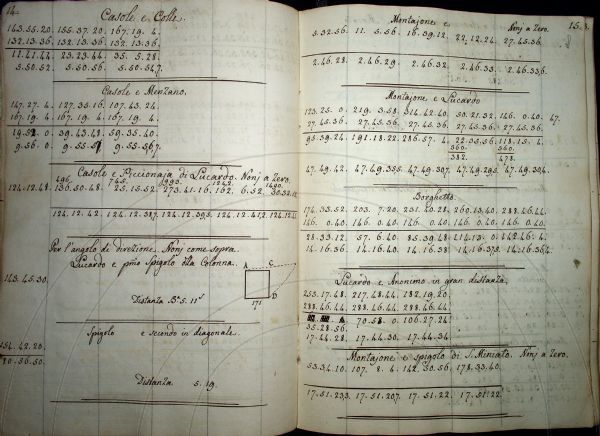 14.
Casole e Colle.
143.55.20. 155.37.20. 167.19.4.
132.13.36. 132.13.36. 132.13.36.
11.41.44 23.23.44 35.5.28.
5.50.52 5.50.56 5.50.547.
Casole e Menzano.
147.27.4. 127.35.16 107.43.24.
167.19.4. 167.19.4. 167.19.4.
19.52.0 39.43.48. 59.35.40.
9.56.0 9.55.57 9.55.567.
Casole e Piccionaja di Lucardo. Nonj a Zero.
496. 745. 993. 1242. 1490.
124.12.48. 136.50.48. 25.15.52. 273.41.16. 162.6.52. 30.32.12
124.12.42. 124.12.387. 124.12.395. 124.12.412. 124.12.41
Per l'angolo di direzione. Nonj come sopra.
Lucardo e pmo Spigolo illa Colonna.
143.45.30.
A C
D
171
Distanza Ba. 5. 11d
Spigolo e secondo in diagonale.
154.42.20.
10.56.50.
Distanza 5.19.
15.
Montajone e Nonj a Zero.
5.32.56. 11.5.56. 16.39.12. 22.12.24. 27.45.36.
2.46.28. 2.46.29. 2.46.32. 2.46.33. 2.46.336.
Montajone e Lucardo
123.25.0. 219.3.58. 314.42.40. 50.21.32. 146.0.40. 47.
27.45.36. 27.45.36. 27.45.36. 27.45.36. 27.45.36.
95.39.24. 191.18.22. 286.57.4. 22.35.56. 118.15.4.
360. 360.
382. 478.
47.49.42. 47.49.355. 47.49.307. 47.49.295. 47.49.304.
Borghetto.
174.33.52. 203.7.20. 231.40.28. 260.13.40. 288.46.44.
146.0.40. 146.0.40. 146.0.40. 146.0.40. 146.0.40.
28.33.12. 57.6.40. 85.39.48. 114.13.0. 142.46.4.
14.16.36. 14.16.40. 14.16.38. 14.16.375. 14.16.364.
Lucardo e Anonimo in gran distanza.
253.17.48. 217.48.44. 182.19.20.
288.46.44. 288.46.44. 288.46.44.
70.58.0. 106.27.24.
35.28.56.
17.44.28. 17.44.30. 17.44.34.
Montajone e spigolo di S. Miniato. Nonj a Zero.
53.34.10. 107.8.4. 142.50.56. 178.33.40.
17.51.233. 17.51.207. 17.51.22. 17.51.22.